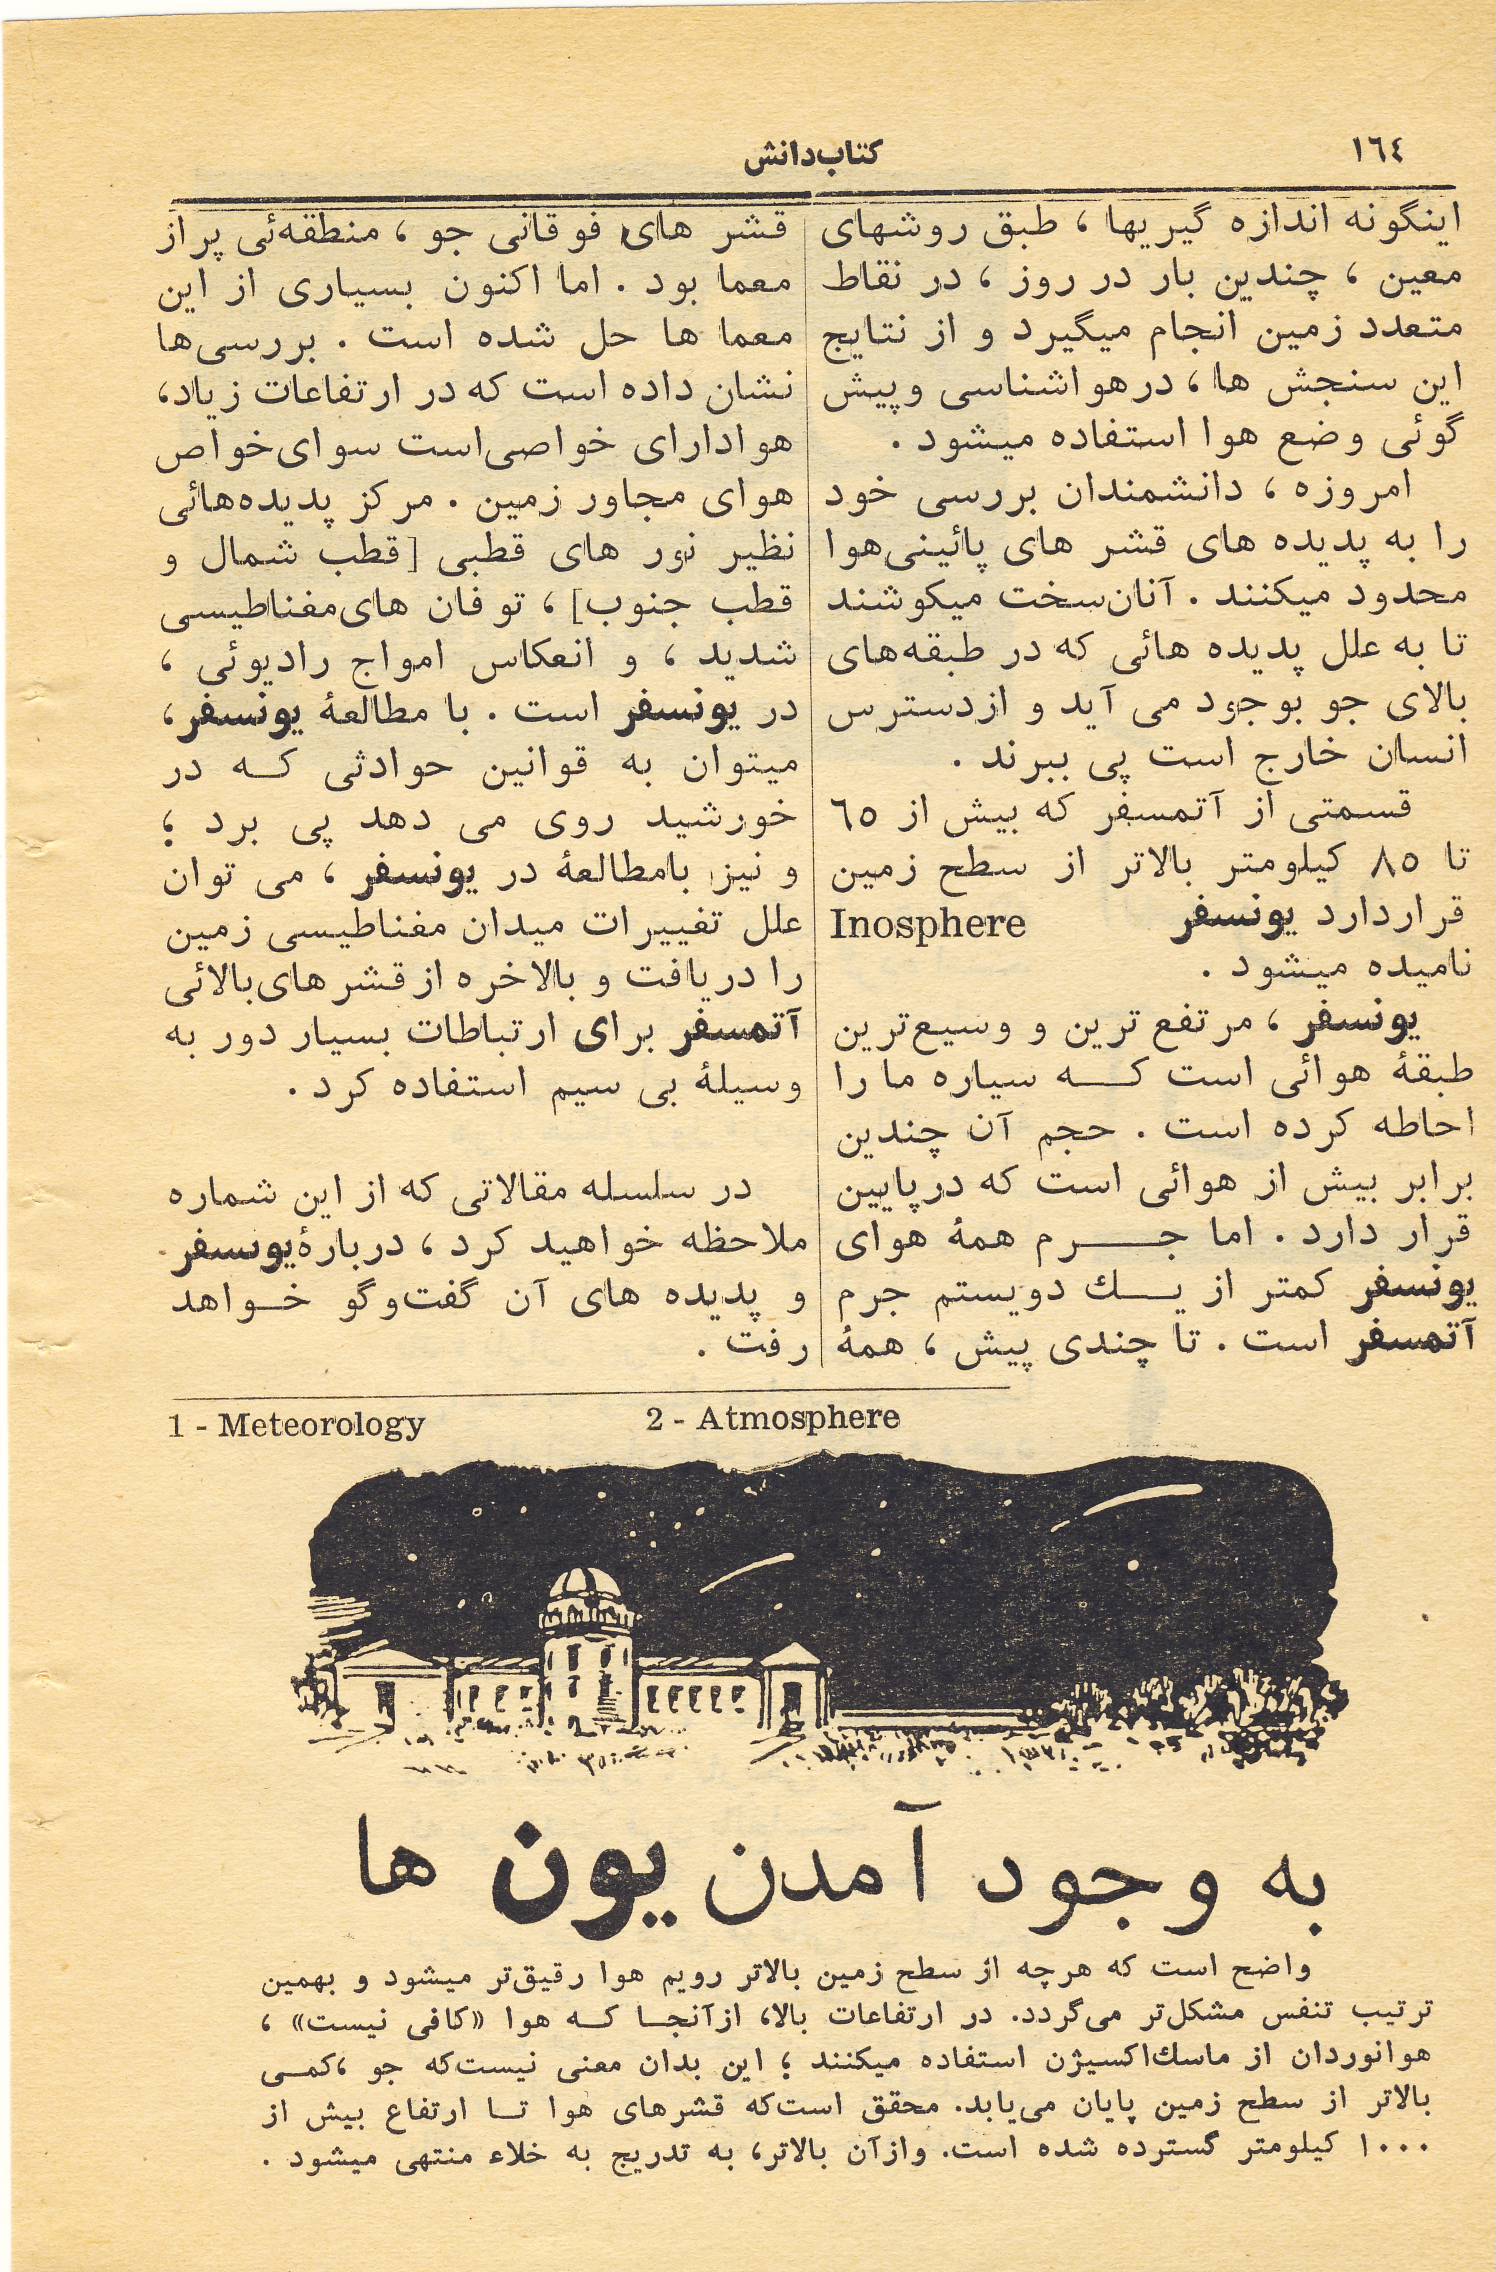 ١٦٤
کتاب‌دانش
اینگونه اندازه گیریها ، طبق روشهای
معین ، چندین بار در روز ، در نقاط
متعدد زمین انجام میگیرد و از نتایج
این سنجش ها ، درهواشناسی وپیش
گوئی وضع هوا استفاده میشود .
امروزه ، دانشمندان بررسی خود
را به پدیده های قشر های پائینی‌هوا
محدود میکنند . آنان‌سخت میکوشند
تا به علل پدیده هائی که در طبقه‌های
بالای جو بوجود می آید و ازدسترس
انسان خارج است پی ببرند .
قسمتی از آتمسفر که بیش از ٦٥
تا ٨٥ کیلومتر بالاتر از سطح زمین
قراردارد یونسفر Inosphere
نامیده میشود .
یونسفر ، مرتفع ترین و وسیع‌ترین
طبقهٔ هوائی است کـــه سیاره ما را
احاطه کرده است . حجم آن چندین
برابر بیش از هوائی است که درپایین
قرار دارد . اما جـــرم همهٔ هوای
یونسفر کمتر از یـــك دویستم جرم
آتمسفر است . تا چندی پیش ، همهٔ
قشر های فوقانی جو ، منطقه‌ئی پراز
معما بود . اما اکنون بسیاری از این
معما ها حل شده است . بررسی‌ها
نشان داده است که در ارتفاعات زیاد،
هوادارای خواصی‌است سوای‌خواص
هوای مجاور زمین . مرکز پدیده‌هائی
نظیر نور های قطبی [قطب شمال و
قطب جنوب] ، توفان های‌مغناطیسی
شدید ، و انعکاس امواج رادیوئی ،
در یونسفر است . با مطالعهٔ یونسفر،
میتوان به قوانین حوادثی کــه در
خورشید روی می دهد پی برد ؛
و نیز بامطالعهٔ در یونسفر ، می توان
علل تغییرات میدان مغناطیسی زمین
را دریافت و بالاخره ازقشرهای‌بالائی
آتمسفر برای ارتباطات بسیار دور به
وسیلهٔ بی سیم استفاده کرد .
در سلسله مقالاتی که از این شماره
ملاحظه خواهید کرد ، دربارهٔ‌یونسفر
و پدیده های آن گفت‌وگو خــواهد
رفت .
1 - Meteorology 2 - Atmosphere
به وجود آمدن یون ها
واضح است که هرچه از سطح زمین بالاتر رویم هوا رقیق‌تر میشود و بهمین
ترتیب تنفس مشکل‌تر می‌گردد. در ارتفاعات بالا، ازآنجــا کــه هوا «کافی نیست» ،
هوانوردان از ماسك‌اکسیژن استفاده میکنند ؛ این بدان معنی نیست‌که جو ،کمــی
بالاتر از سطح زمین پایان می‌یابد. محقق است‌که قشرهای هوا تــا ارتفاع بیش از
١٠٠٠ کیلومتر گسترده شده است. وازآن بالاتر، به تدریج به خلاء منتهی میشود .